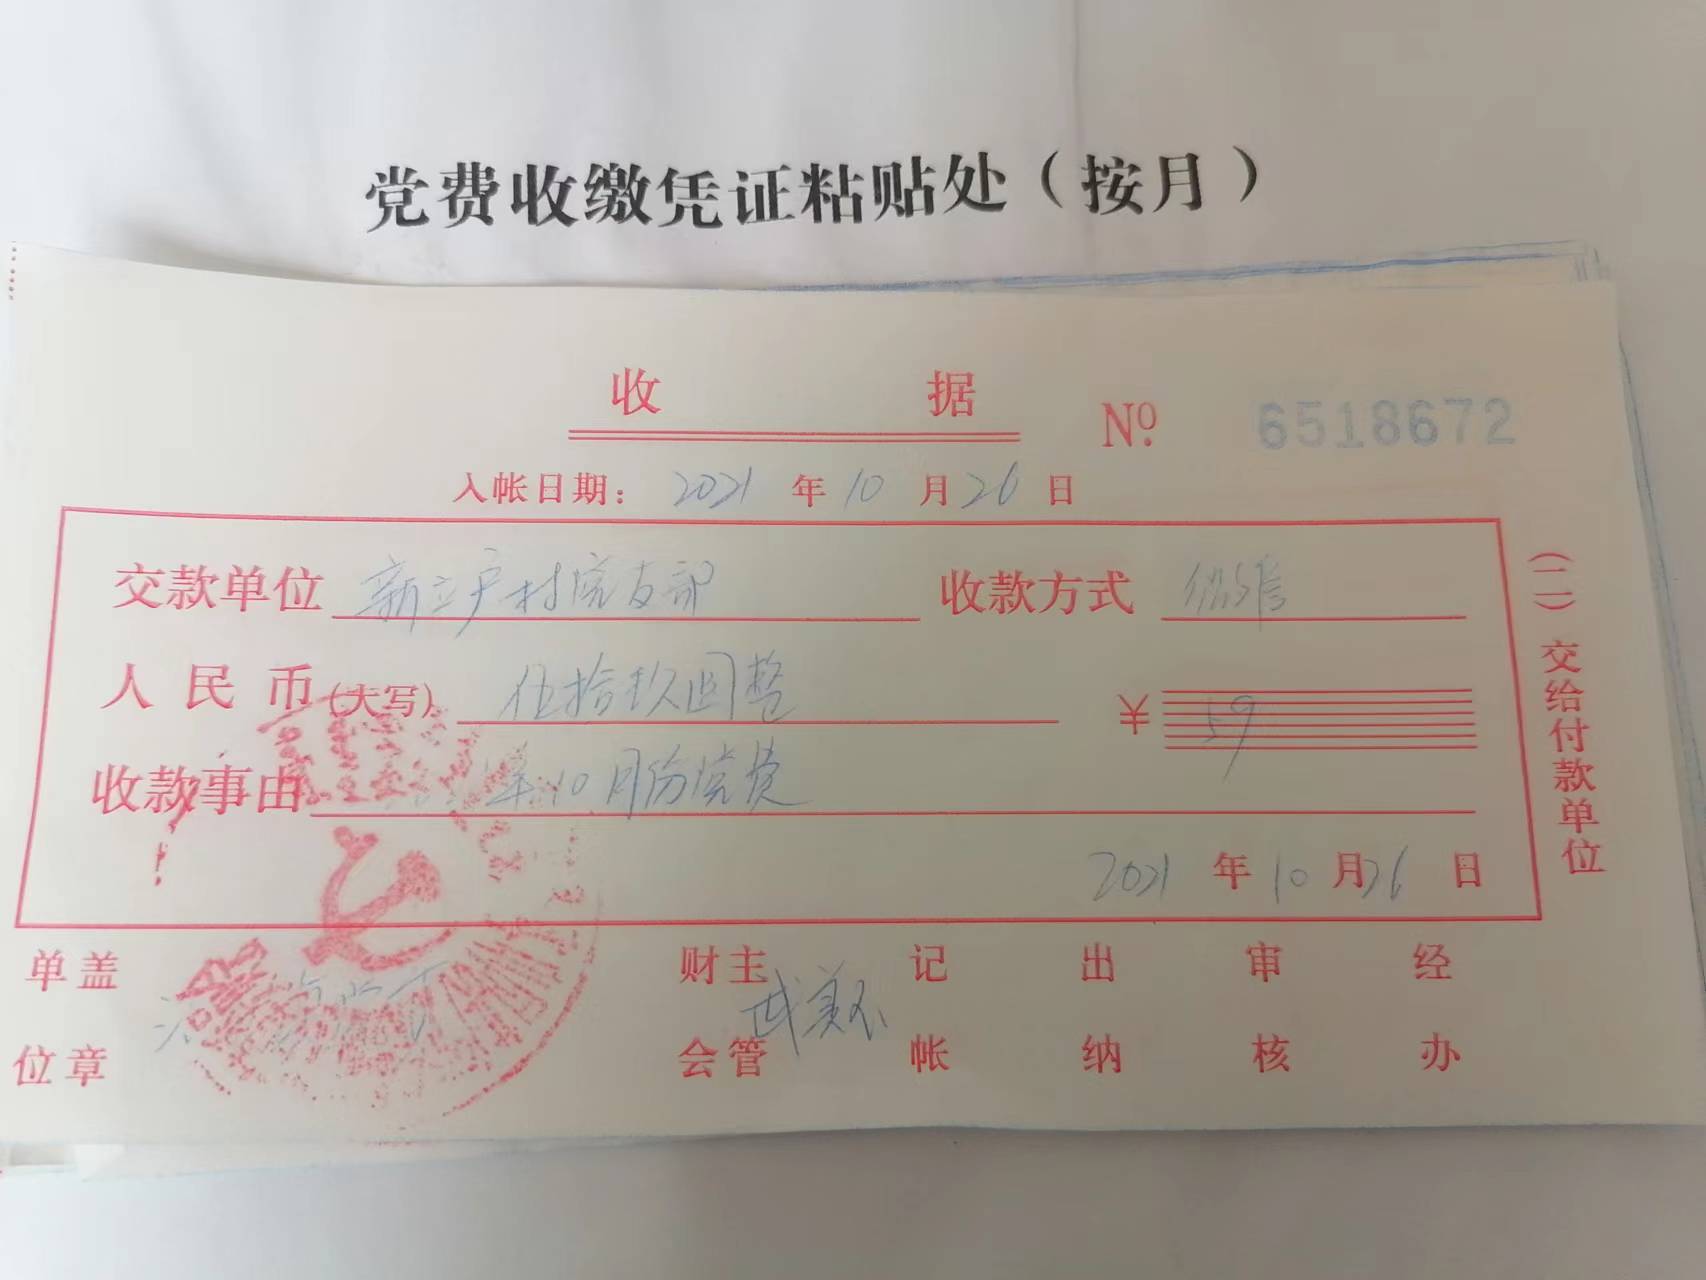 党费收缴凭证粘贴处（按月）
收据
No. 6518672
入帐日期： 2021 年 10 月 26 日
交款单位 新立户村党支部 收款方式 微信
人民币（大写） 伍拾玖圆整 ¥ 59
收款事由 年10月份党费
2021 年 10 月 26 日
（二）交给付款单位
单位盖章
财会主管 武 记帐 出纳 审核 经办